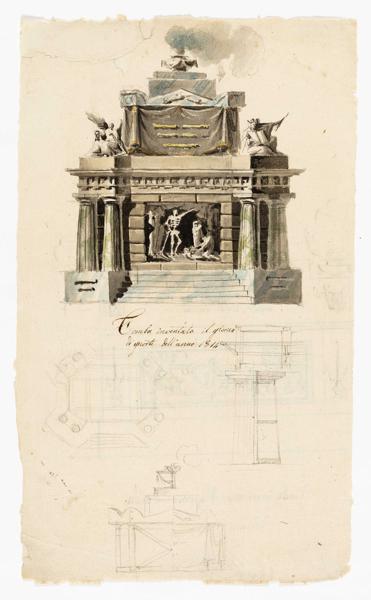 Tomba inventata il giorno
agosto dell'anno 1814